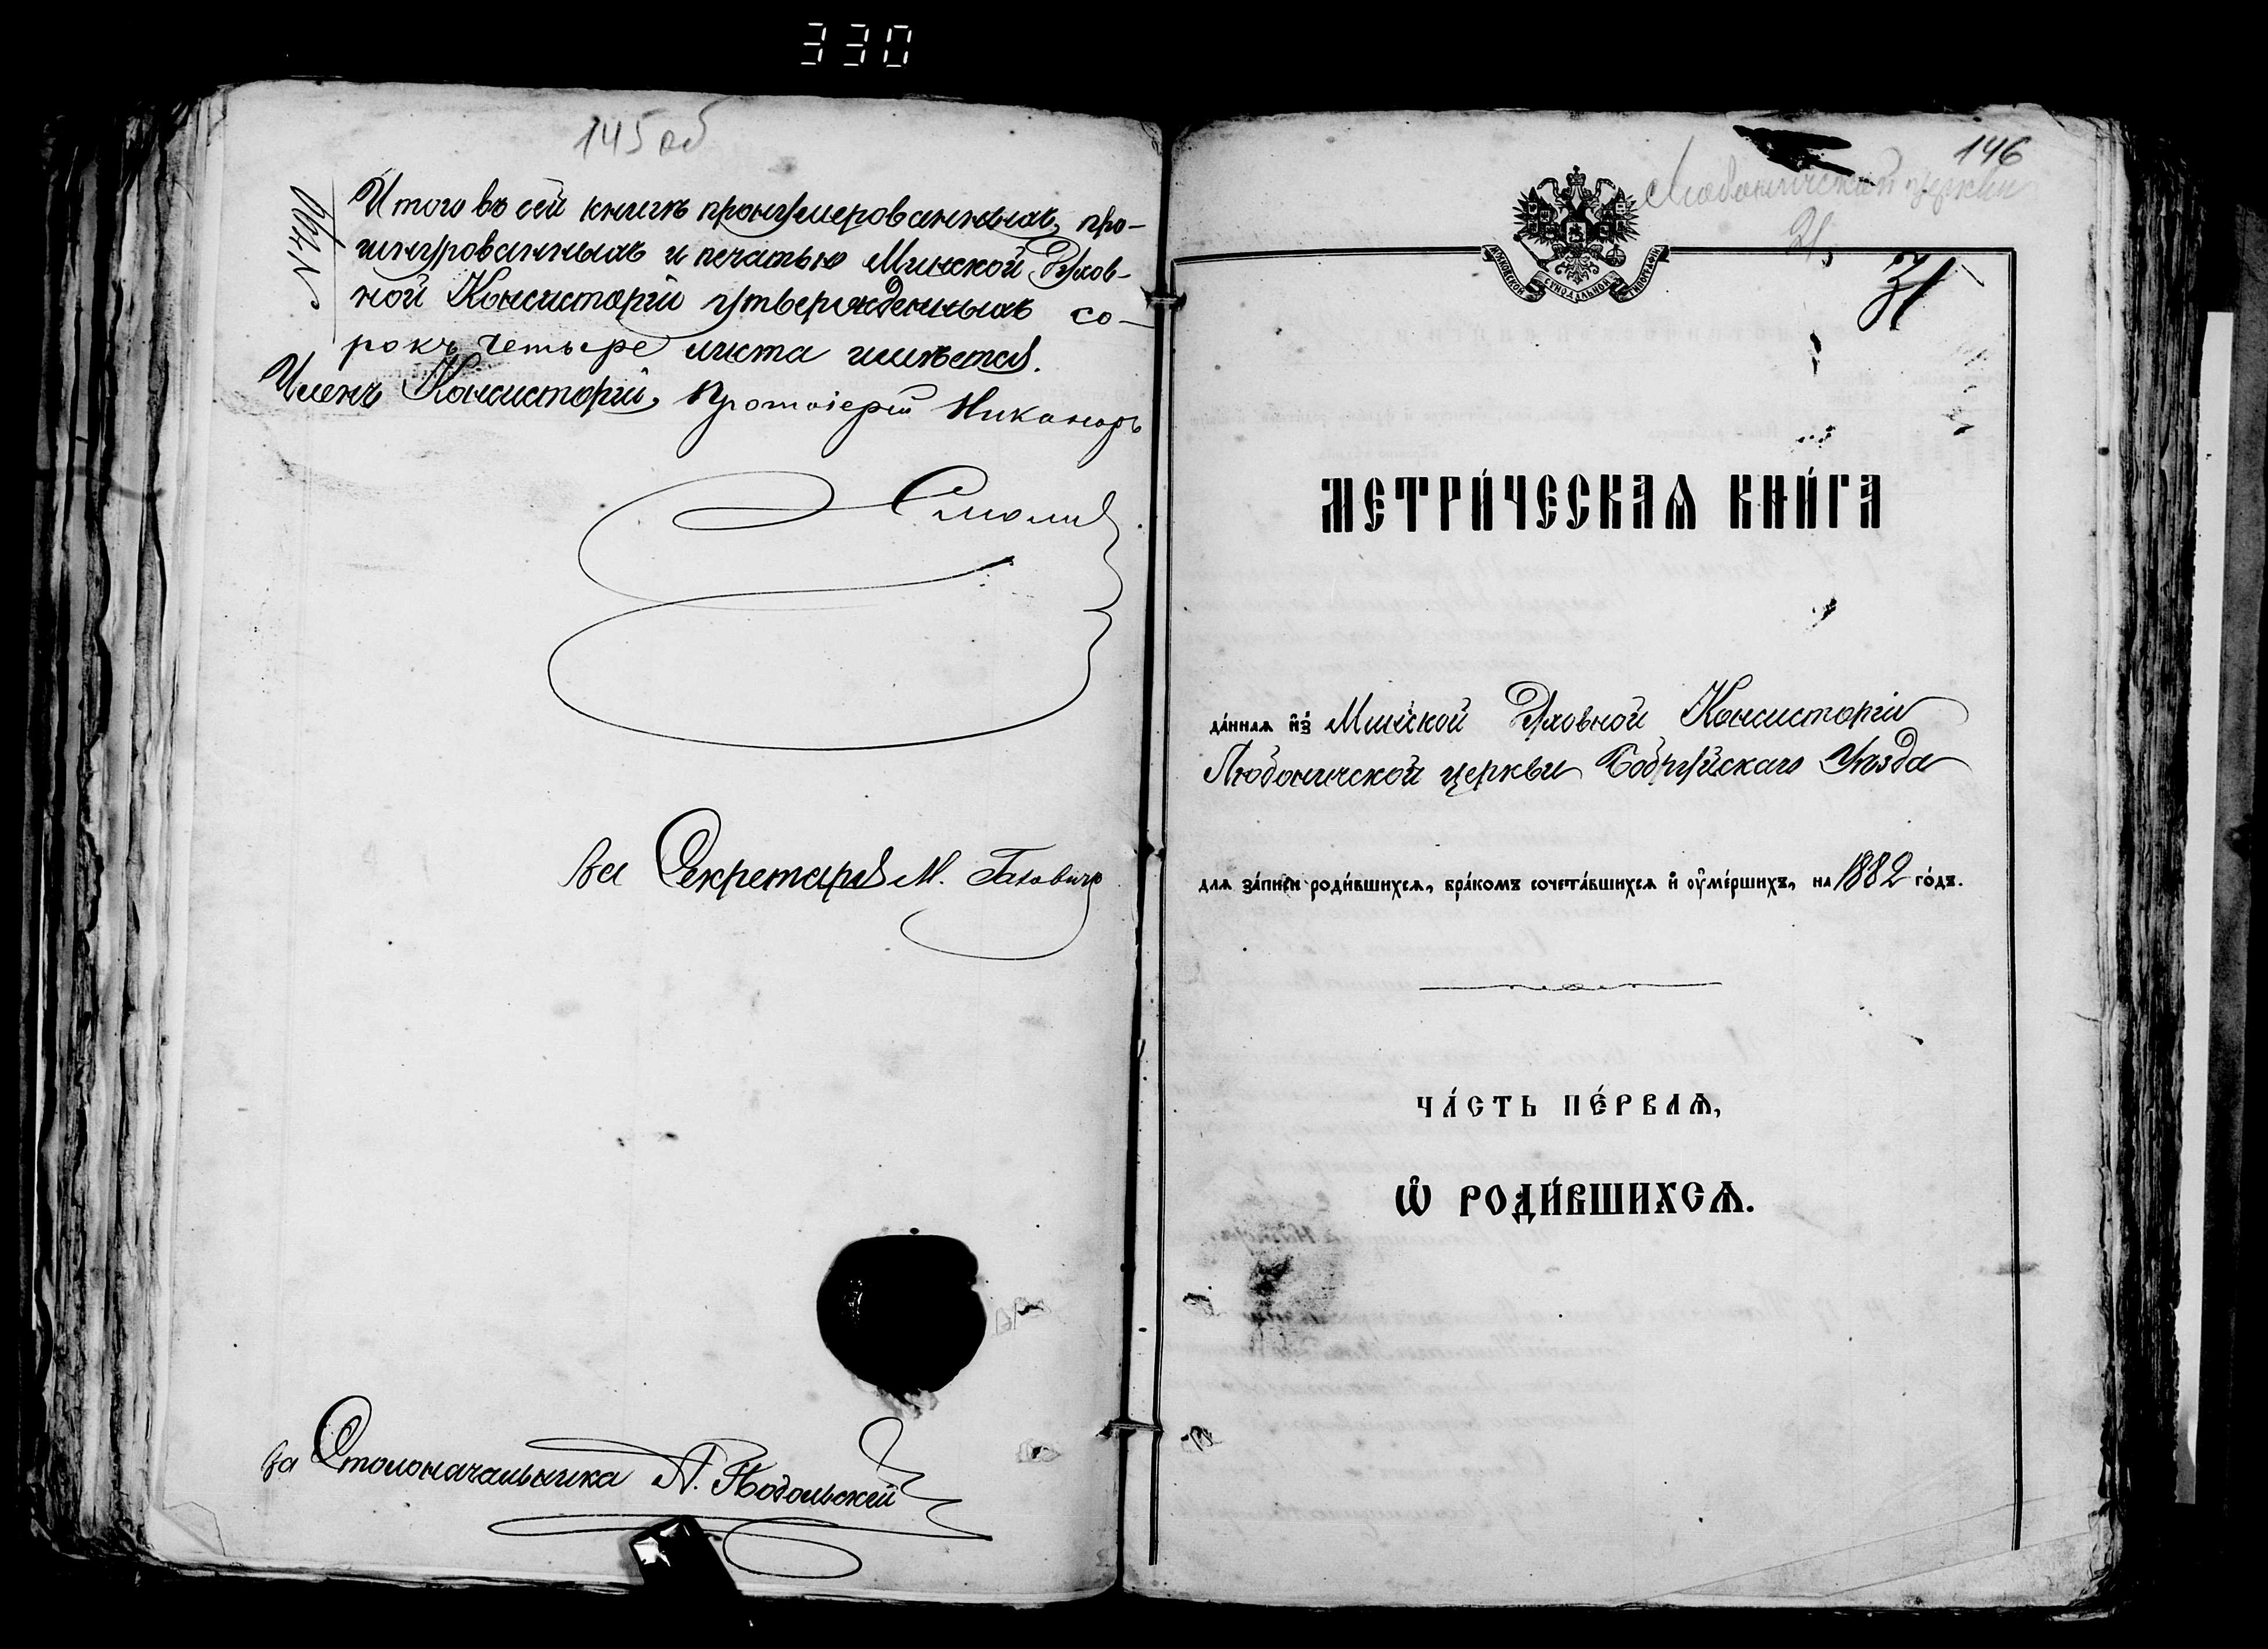 330
145 об
Итого въ сей книгѣ пронумерованныхъ, про-
шнурованныхъ и печатью Минской Духов-
ной Консисторіи утвержденныхъ со-
рокъ четыре листа имѣется.
Членъ Консисторіи, Протоіерей Никаноръ
Смоличъ
За Секретаря М.
За Столоначальника А. Подольскій
146
Любоничской церкви
21,
31
МОСКОВСКОЙ СѴНОДАЛЬНОЙ ТИПОГРАФІИ
МЕТРИ́ЧЕСКАѦ КНИ́ГА
да́ннаѧ и҆з̾ Минской Духовной Консисторіи
Любоничской церкви Бобруйскаго Уѣзда
длѧ за́писи роди́вшихсѧ, бра́комъ сочета́вшихсѧ и҆ ᲂу҆ме́ршихъ, на 1882 го́дъ.
ЧА́СТЬ ПЕ́РВАѦ,
Ѡ҆ РОДИ́ВШИХСѦ.